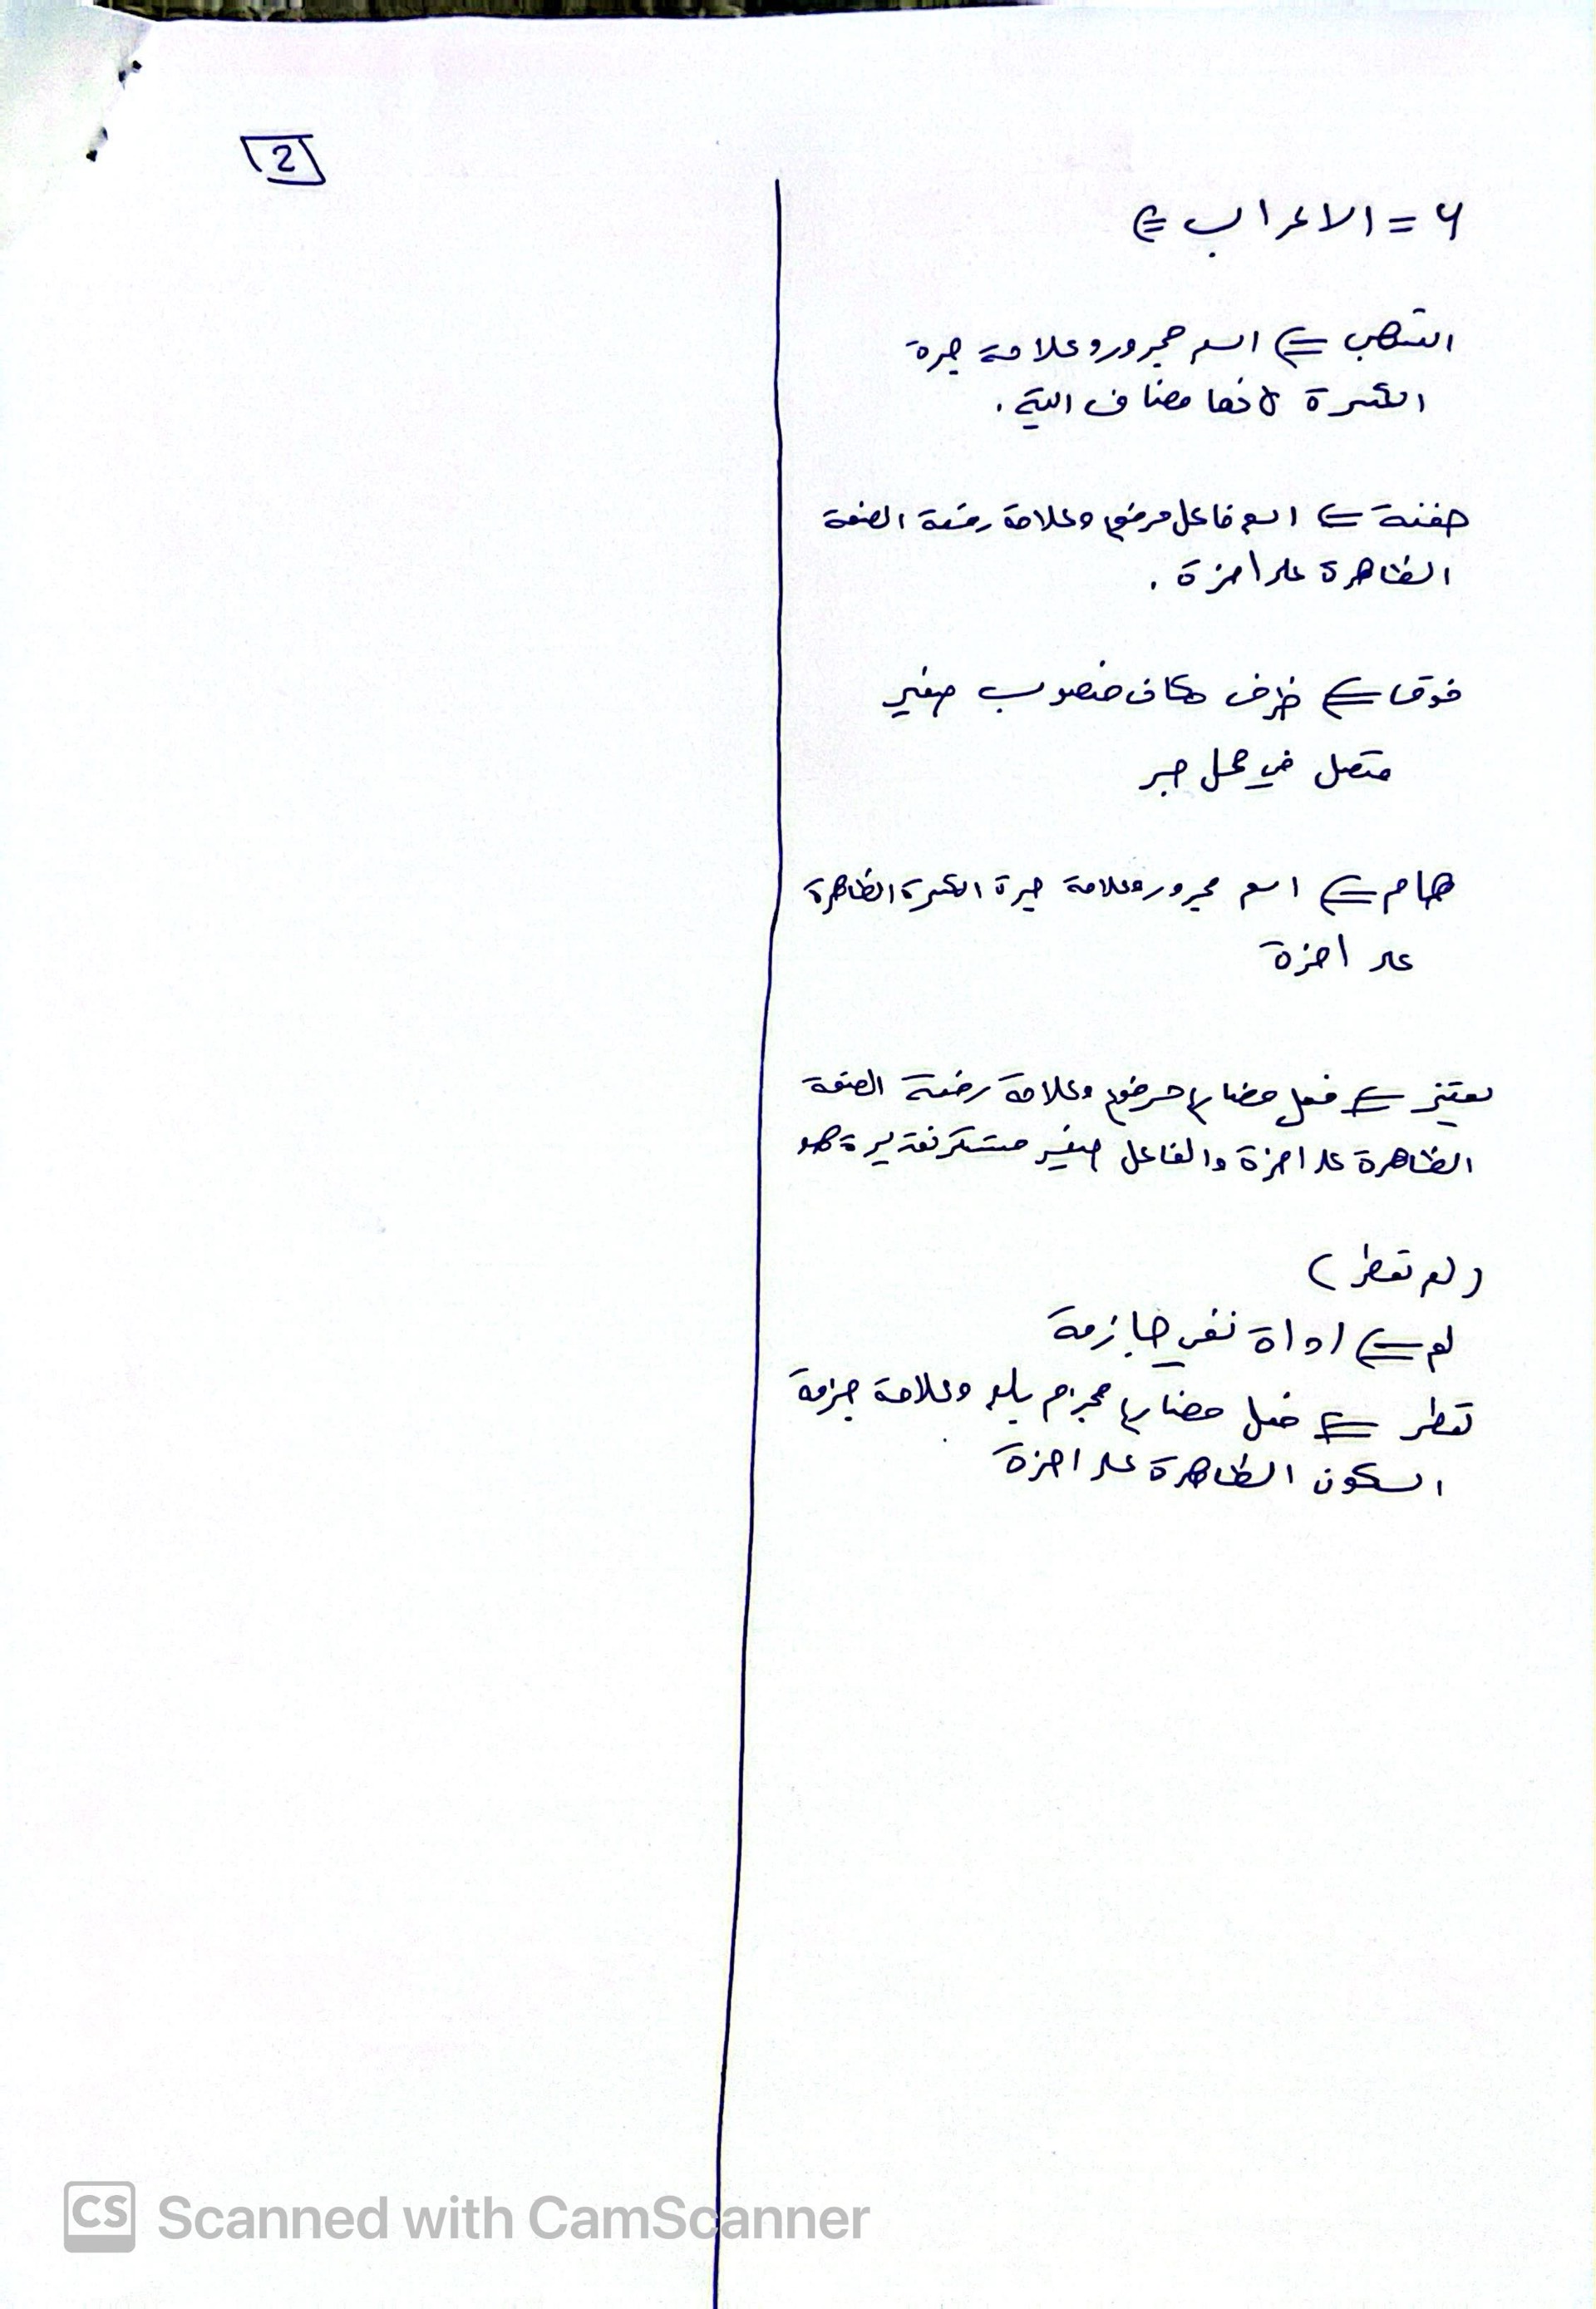 2
٦ = الاعراب
الشهب ⇐ اسم مجرور وعلامة جرة
الكسرة لانها مضاف الية .
حفنة ⇐ اسم فاعل مرفوع وعلامة رفعة الضمة
الظاهرة على اخرة .
فوق ⇐ ظرف مكان منصوب ضمير
متصل في محل جر
هام ⇐ اسم مجرور وعلامة جرة الكسرة الظاهرة
على اخرة
⇐ فعل مضارع مرفوع وعلامة رفعة الضمة
الظاهرة على اخرة والفاعل ضمير مستتر تقديرة هو
(لم تمطر)
لم ⇐ اداة نفي جازمة
تمطر ⇐ فعل مضارع مجزم بلم وعلامة جزمة
السكون الظاهرة على اخرة
CS Scanned with CamScanner